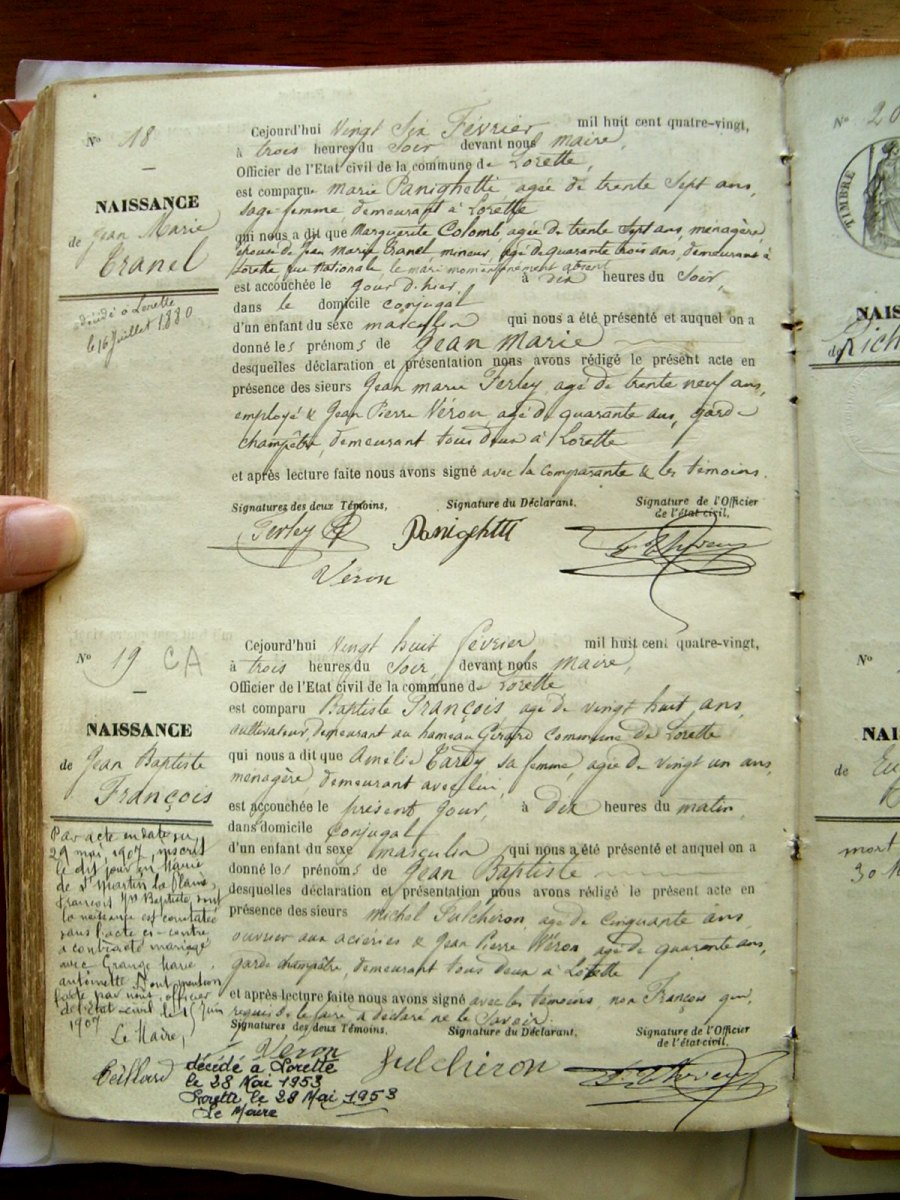 N° 18
NAISSANCE
de Jean Marie
Tranel
décédé à Lorette
le 16 Juillet 1880
Cejourd'hui Vingt Six Février mil huit cent quatre-vingt,
à trois heures du Soir devant nous maire,
Officier de l'Etat civil de la commune de Lorette,
est comparue Marie Panighetti agée de trente Sept ans,
sage-femme, demeurant à Lorette
qui nous a dit que Marguerite Colomb, agée de trente Sept ans, ménagère,
épouse de Jean Marie Tranel, mineur, agé de quarante trois ans, demeurant à
Lorette, rue Nationale, le mari momentanément absent
est accouchée le jour d'hier, à dix heures du Soir,
dans le domicile conjugal
d'un enfant du sexe masculin qui nous a été présenté et auquel on a
donné les prénoms de Jean Marie
desquelles déclaration et présentation nous avons rédigé le présent acte en
présence des sieurs Jean Marie Ferley agé de trente neuf ans,
employé & Jean Pierre Véron agé de quarante ans, garde
champêtre, demeurant tous deux à Lorette
et après lecture faite nous avons signé avec la comparante & les témoins.
Signatures des deux Témoins, Signature du Déclarant. Signature de l'Officier
de l'état civil,
Ferley Panighetti
Véron
N° 19 CA
NAISSANCE
de Jean Baptiste
François
Par acte en date du
29 mai 1907, inscrit
le dit jour en mairie
de St Martin la Plaine,
François Jn Baptiste, dont
la naissance est constatée
dans l'acte ci-contre,
a contracté mariage
avec Grange Marie
antoinette. Dont mention
faite par nous, officier
de l'Etat-civil le 15 Juin
1907
Le Maire,
Cejourd'hui Vingt huit février mil huit cent quatre-vingt,
à trois heures du Soir, devant nous maire,
Officier de l'Etat civil de la commune de Lorette
est comparu Baptiste François agé de vingt huit ans,
cultivateur, demeurant au hameau Girard Commune de Lorette
qui nous a dit que Amélie Tardy sa femme, agée de vingt un ans,
ménagère, demeurant avec lui,
est accouchée le présent jour, à dix heures du matin,
dans domicile conjugal
d'un enfant du sexe masculin qui nous a été présenté et auquel on a
donné les prénoms de Jean Baptiste
desquelles déclaration et présentation nous avons rédigé le présent acte en
présence des sieurs Michel Fulchiron, agé de cinquante ans
ouvrier aux aciéries & Jean Pierre Véron agé de quarante ans,
garde champêtre, demeurant tous deux à Lorette
et après lecture faite nous avons signé avec les témoins, non François qui,
requis de le faire, a déclaré ne le Savoir.
Signatures des deux Témoins. Signature du Déclarant. Signature de l'Officier
de l'état civil.
Véron Fulchiron
décédé à Lorette
le 28 Mai 1953
Lorette le 28 Mai 1953
Le Maire
N° 20
TIMBRE
NAIS
de Rich
N°
NAI
de Eu
mort
30 M